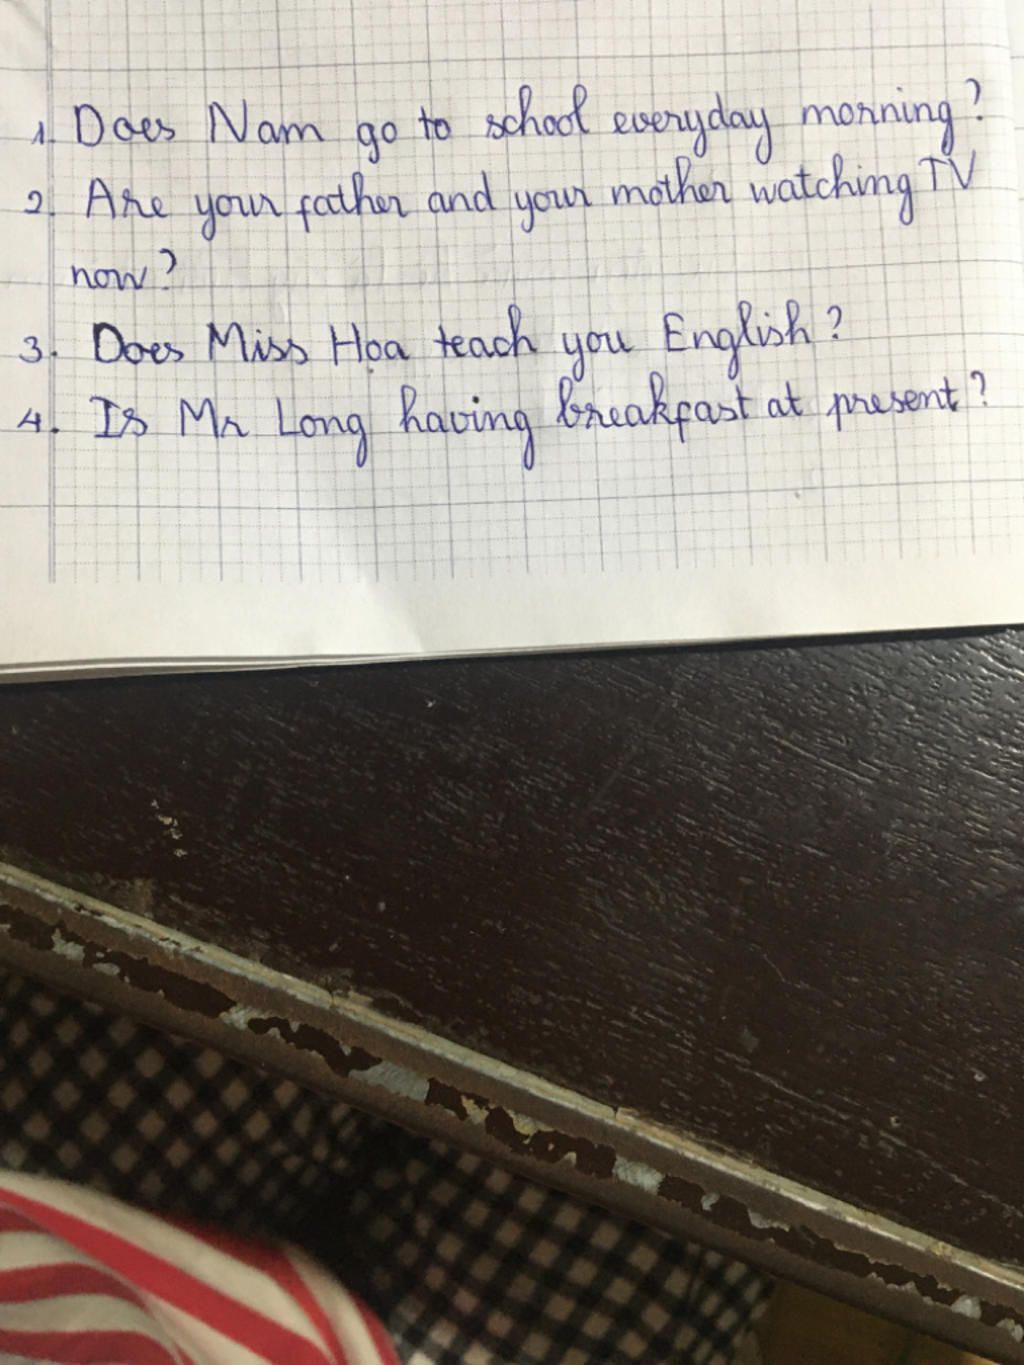 1. Does Nam go to school everyday morning?
2. Are your father and your mother watching TV
now?
3. Does Miss Hoa teach you English?
4. Is Mr Long having breakfast at present?